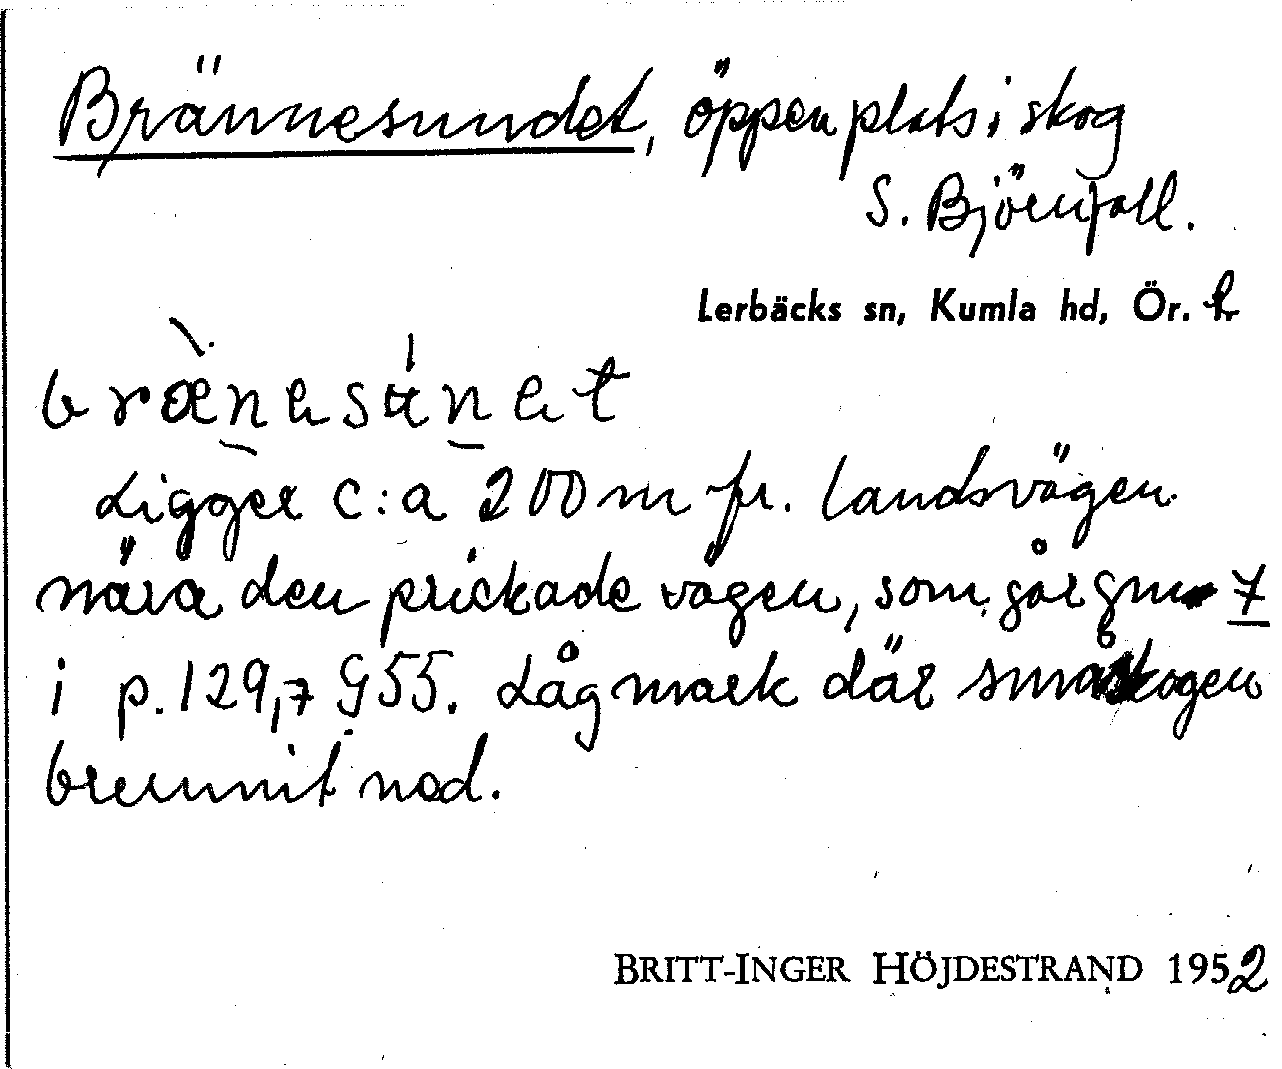 Brännesundet, öppen plats i skog
S. Björnfall.
Lerbäcks sn, Kumla hd, Ör. l.
bræ̀nesúnet
Ligger c:a 200 m fr. landsvägen
nära den prickade vägen, som går gm 7
i p. 129,7 955. Lågmark där småskogen
brunnit ned.
BRITT-INGER HÖJDESTRAND 1952